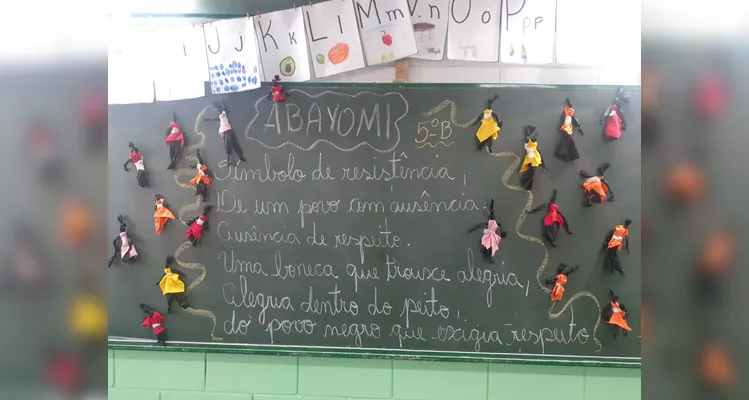 Jj Kk Ll Mm Nn Oo Pp
ABAYOMI 5º B
Símbolo de resistência,
De um povo com ausência.
Ausência de respeito.
Uma boneca que trouxe alegria,
Alegria dentro do peito,
do povo negro que exigia respeito